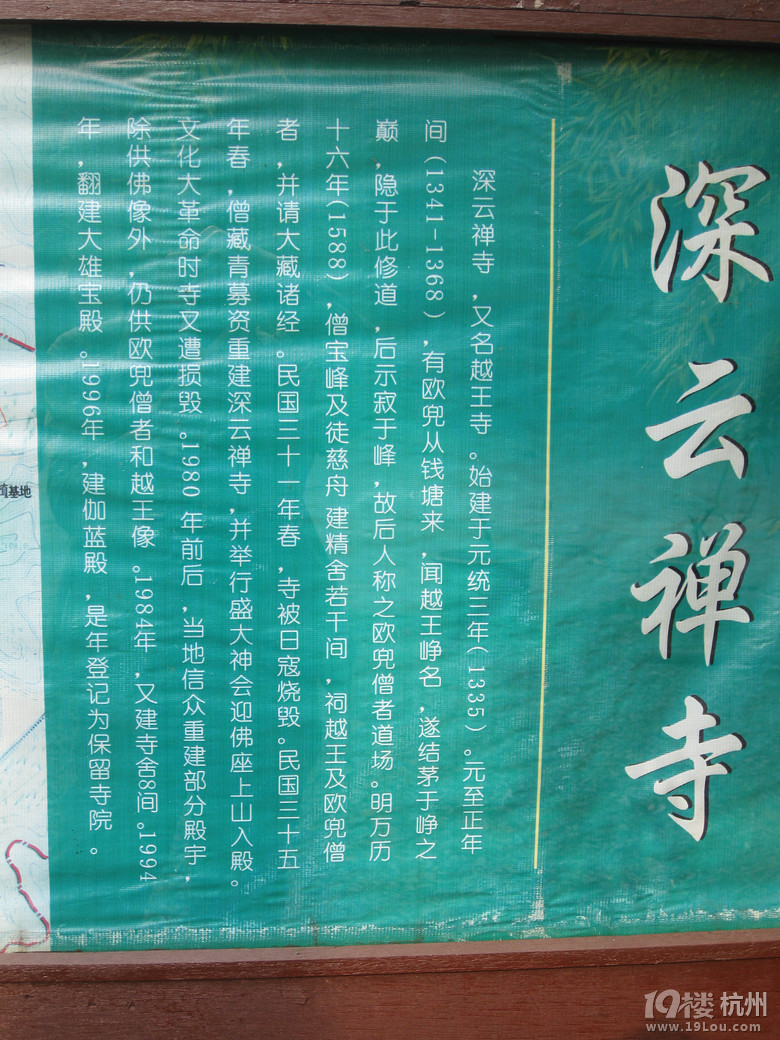 深云禅寺
深云禅寺，又名越王寺。始建于元统三年(1335)。元至正年
间(1341-1368)，有欧兜从钱塘来，闻越王峥名，遂结茅于峥之
巅，隐于此修道，后示寂于峰，故后人称之欧兜僧者道场。明万历
十六年(1588)，僧宝峰及徒慈舟建精舍若干间，祠越王及欧兜僧
者，并请大藏诸经。民国三十一年春，寺被日寇烧毁。民国三十五
年春，僧藏青募资重建深云禅寺，并举行盛大神会迎佛座上山入殿。
文化大革命时寺又遭损毁。1980年前后，当地信众重建部分殿宇，
除供佛像外，仍供欧兜僧者和越王像。1984年，又建寺舍8间。1994
年，翻建大雄宝殿。1996年，建伽蓝殿，是年登记为保留寺院。
基地
19楼 杭州
www.19Lou.com